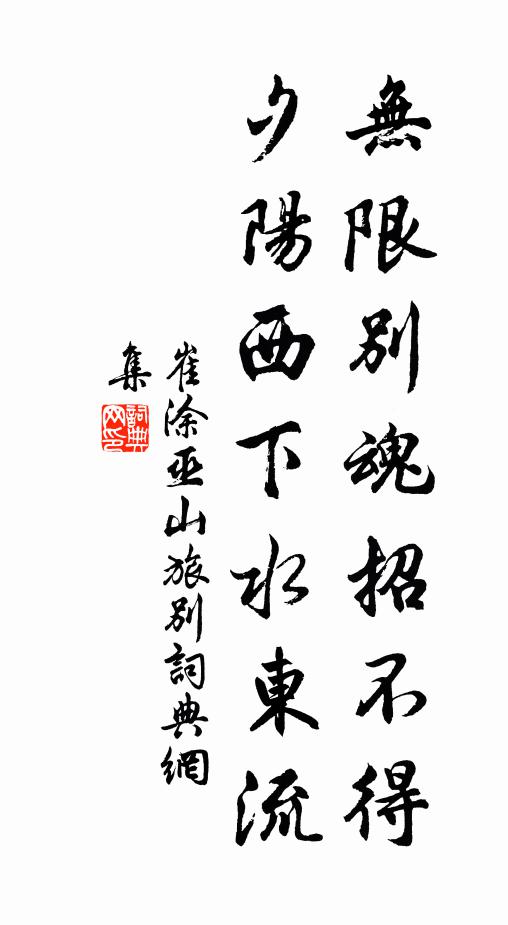 無限別魂招不得
夕陽西下水東流
崔涂巫山旅別詞典網
集
詞典
网印